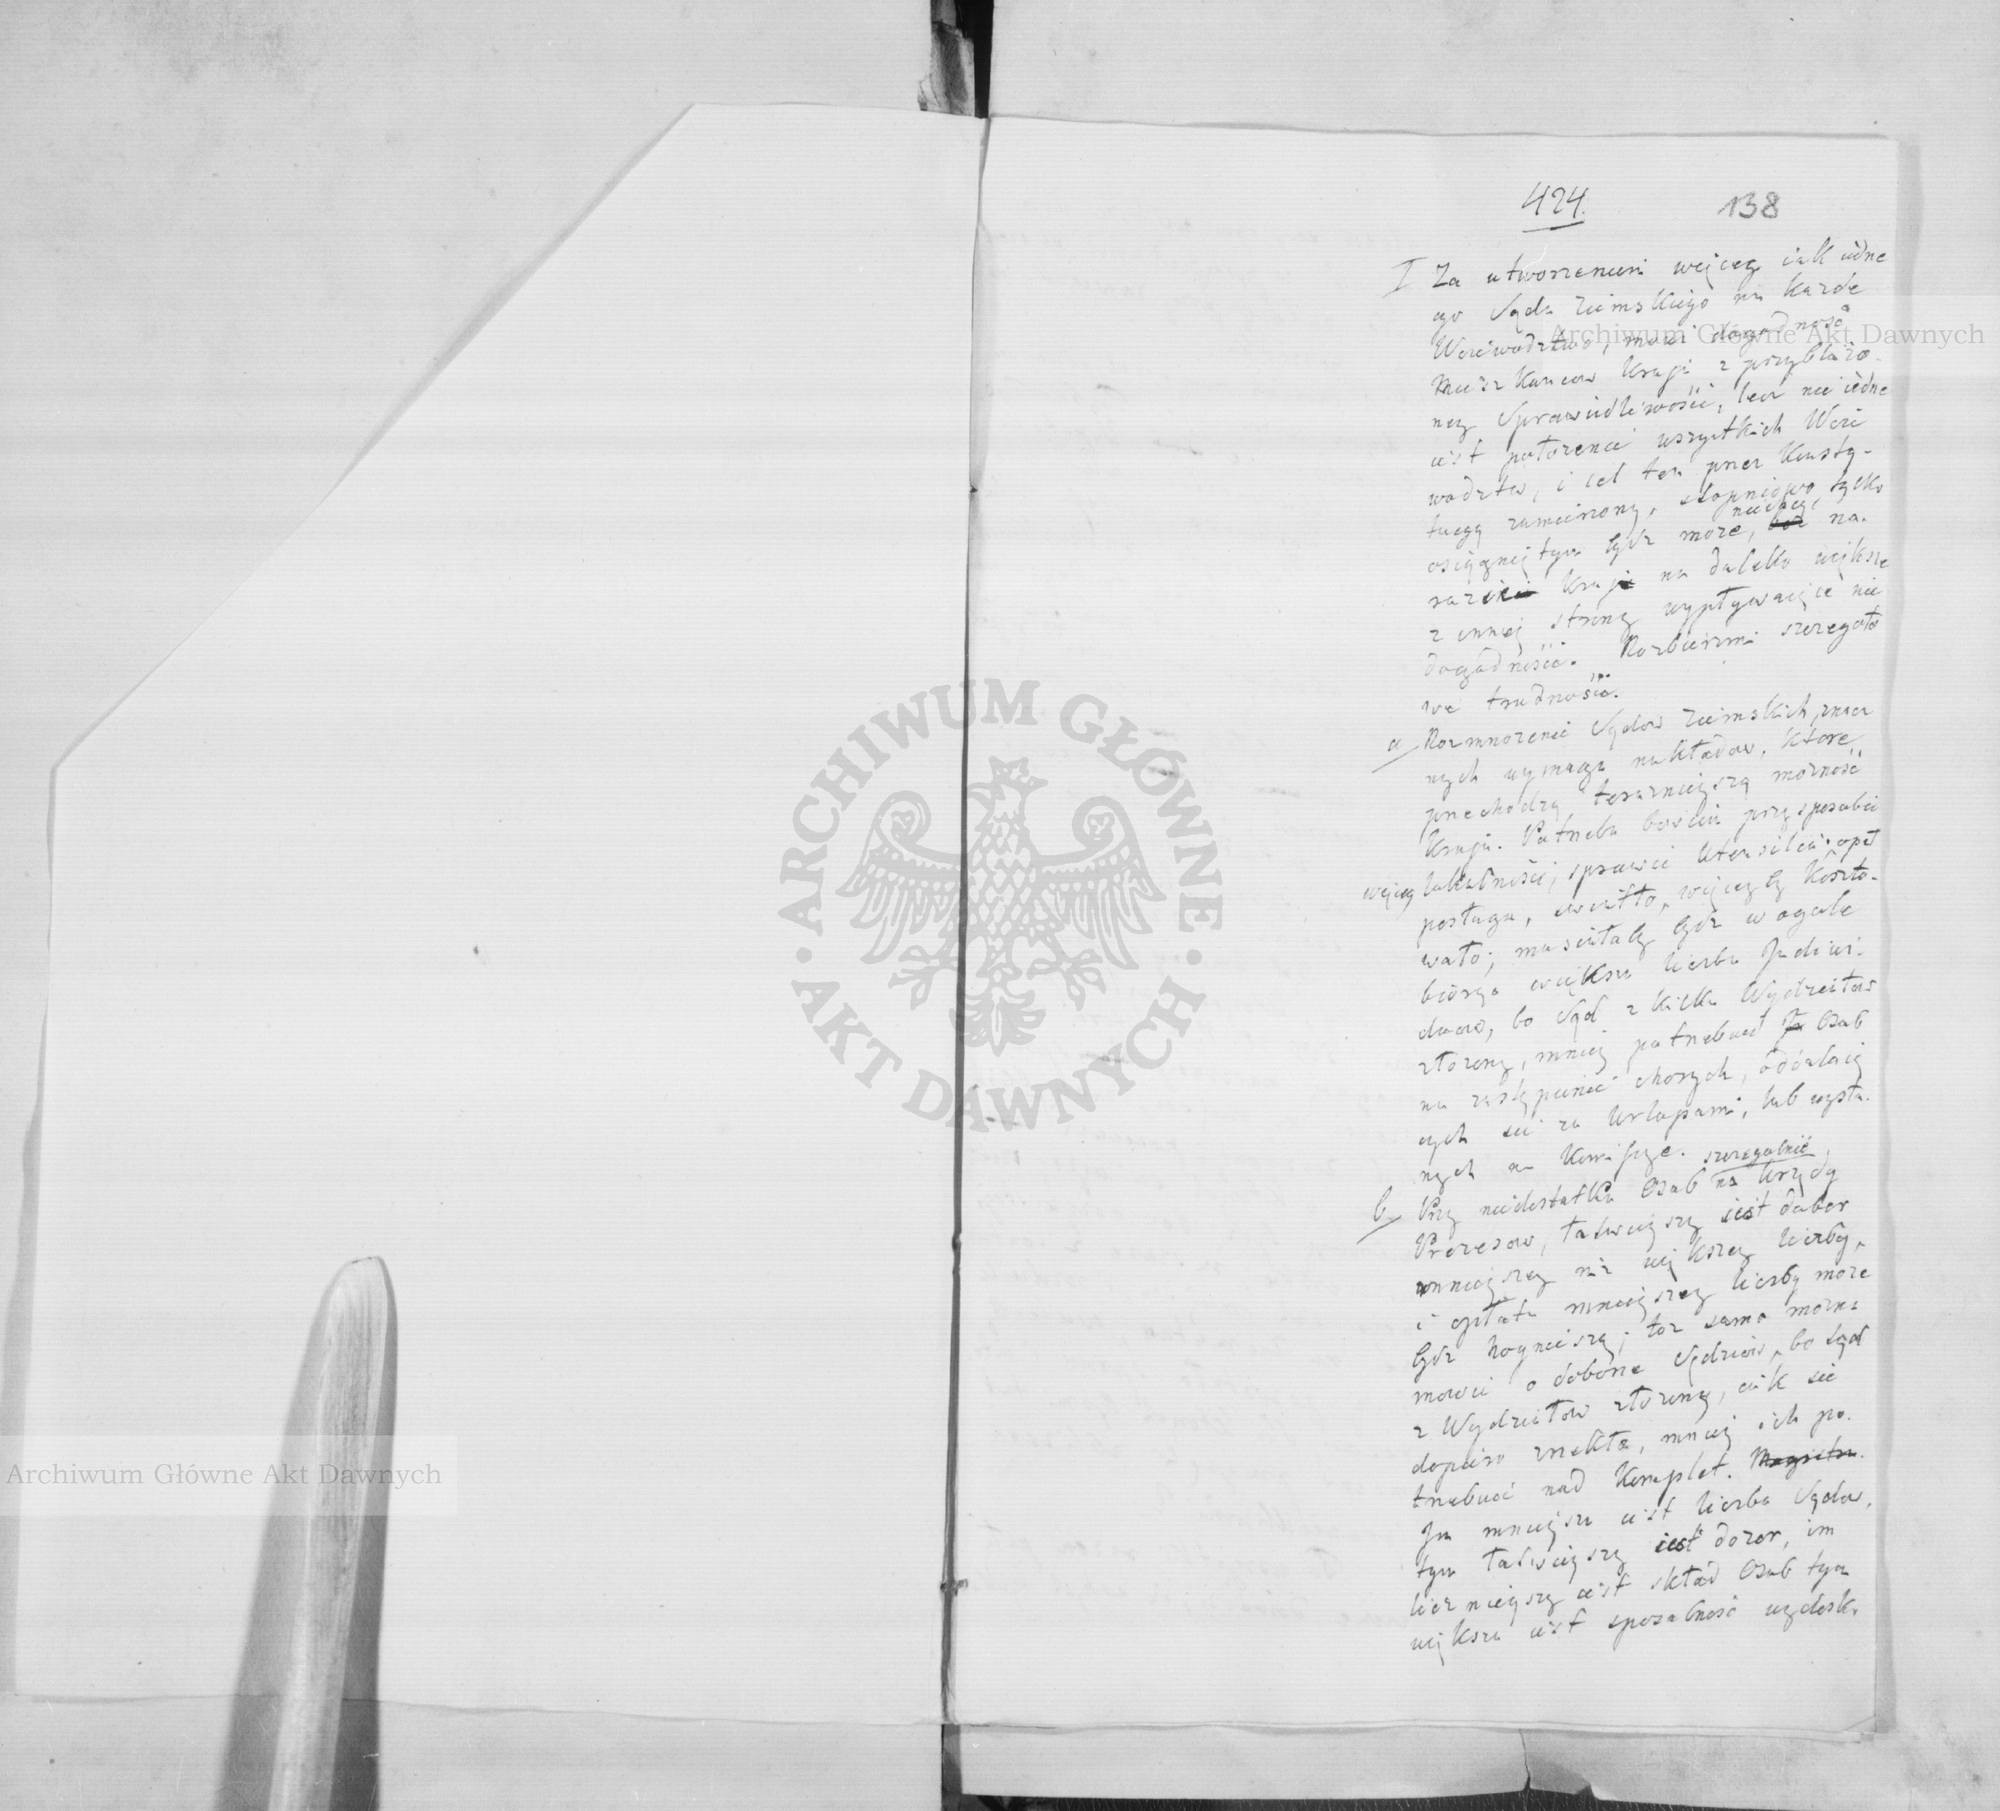 424.
138
I Za utworzeniem więcey iak iedne
go Sądu Ziemskiego na każde
Woiewodztwo, mowi dogodność
Mieszkancow Kraju z przybliżo-
ney Sprawiedliwości, lecz nie iedne
iest położenie wszystkich Woie
wodztw, i cel ten przez Konsty-
tucyą zamierzony, stopniowo tylko
osiągniętym bydz może, inaczey na-
razi Kraj na daleko większe
z inney strony wypływaiące nie
dogodności. Rozbierzmy szczegoło
we trudności.
a Rozmnożenie Sądow Ziemskich, znacz
nych wymaga nakładow, ktore
przechodzą teraznieyszą możność
Kraju. Potrzeba bowiem przysposobić
więcey lokalności, sprawić Utensilia, opał
posługa, swiatło, więcey by koszto-
wało; musiałaby bydz w ogole
biorąc większa liczba Indiwi-
duow, bo Sąd z kilku Wydziałow
złożony, mniey potrzebuie Osob
na zastąpienie chorych, oddalaią
cych się za Urlopami, lub wysła-
nych na Komissye.
szczegolnie
b Przy niedostatku Osob na Urzędy
Prezesow, łatwieyszy iest dobor
mnieyszey niż większey liczby,
i opłata mnieyszey liczby może
bydz hoynieyszą; toz samo można
mowić o doborze Sędziow, bo Sąd
z Wydziałow złożony, iak się
dopiero rzekło, mniey ich po-
trzebuie nad Komplet.
Im mnieysza iest liczba Sądow,
tym łatwieyszy iest dozor, im
licznieyszy iest skład Osob tym
większa iest sposobność wydosk-
Archiwum Główne Akt Dawnych
Archiwum Główne Akt Dawnych
ARCHIWUM GŁÓWNE · AKT DAWNYCH ·